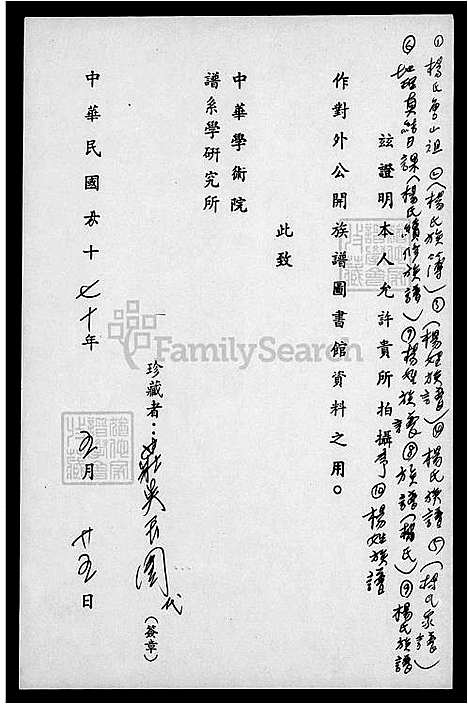 ①楊氏魯山祖②(楊氏族簿)③(楊姓族譜)④楊氏族譜⑤(楊氏家譜)
⑥地理真結日課(楊氏續修族譜)⑦楊姓族譜⑧族譜(楊氏)⑨楊氏族譜
茲證明本人允許貴所拍攝⑩楊姓族譜
作對外公開族譜圖書館資料之用。
此致
中華學術院
譜系學研究所
珍藏者：莊吳 代
(簽章)
中華民國 七十年 五月 廿五日
FamilySearch